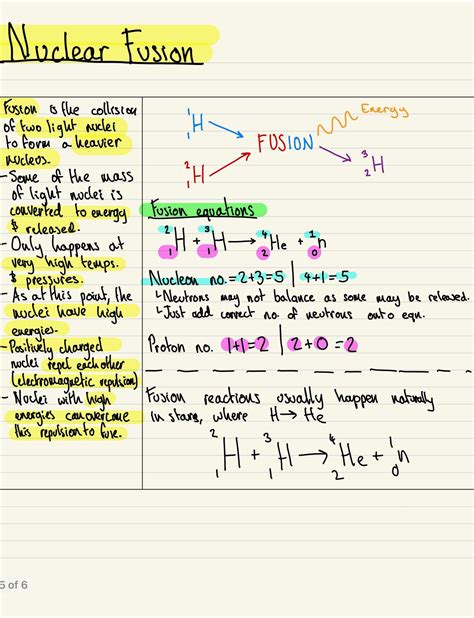 Nuclear Fusion
Fusion is the collision
of two light nuclei
to form a heavier
nucleus.
- Some of the mass
of light nuclei is
converted to energy
& released.
- Only happens at
very high temps.
& pressures.
- As at this point, the
nuclei have high
energies.
- Positively charged
nuclei repel each other
(electromagnetic repulsion)
- Nuclei with high
energies can overcome
this repulsion to fuse.
¹₁H
²₁H
FUSION
Energy
³₂H
Fusion equations
²₁H + ³₁H → ⁴₂He + ¹₀n
Nucleon no. = 2+3=5 | 4+1=5
↳ Neutrons may not balance as some may be released.
↳ Just add correct no. of neutrons onto eqn.
Proton no. 1+1=2 | 2+0=2
Fusion reactions usually happen naturally
in stars, where H → He
²₁H + ³₁H → ⁴₂He + ¹₀n
5 of 6